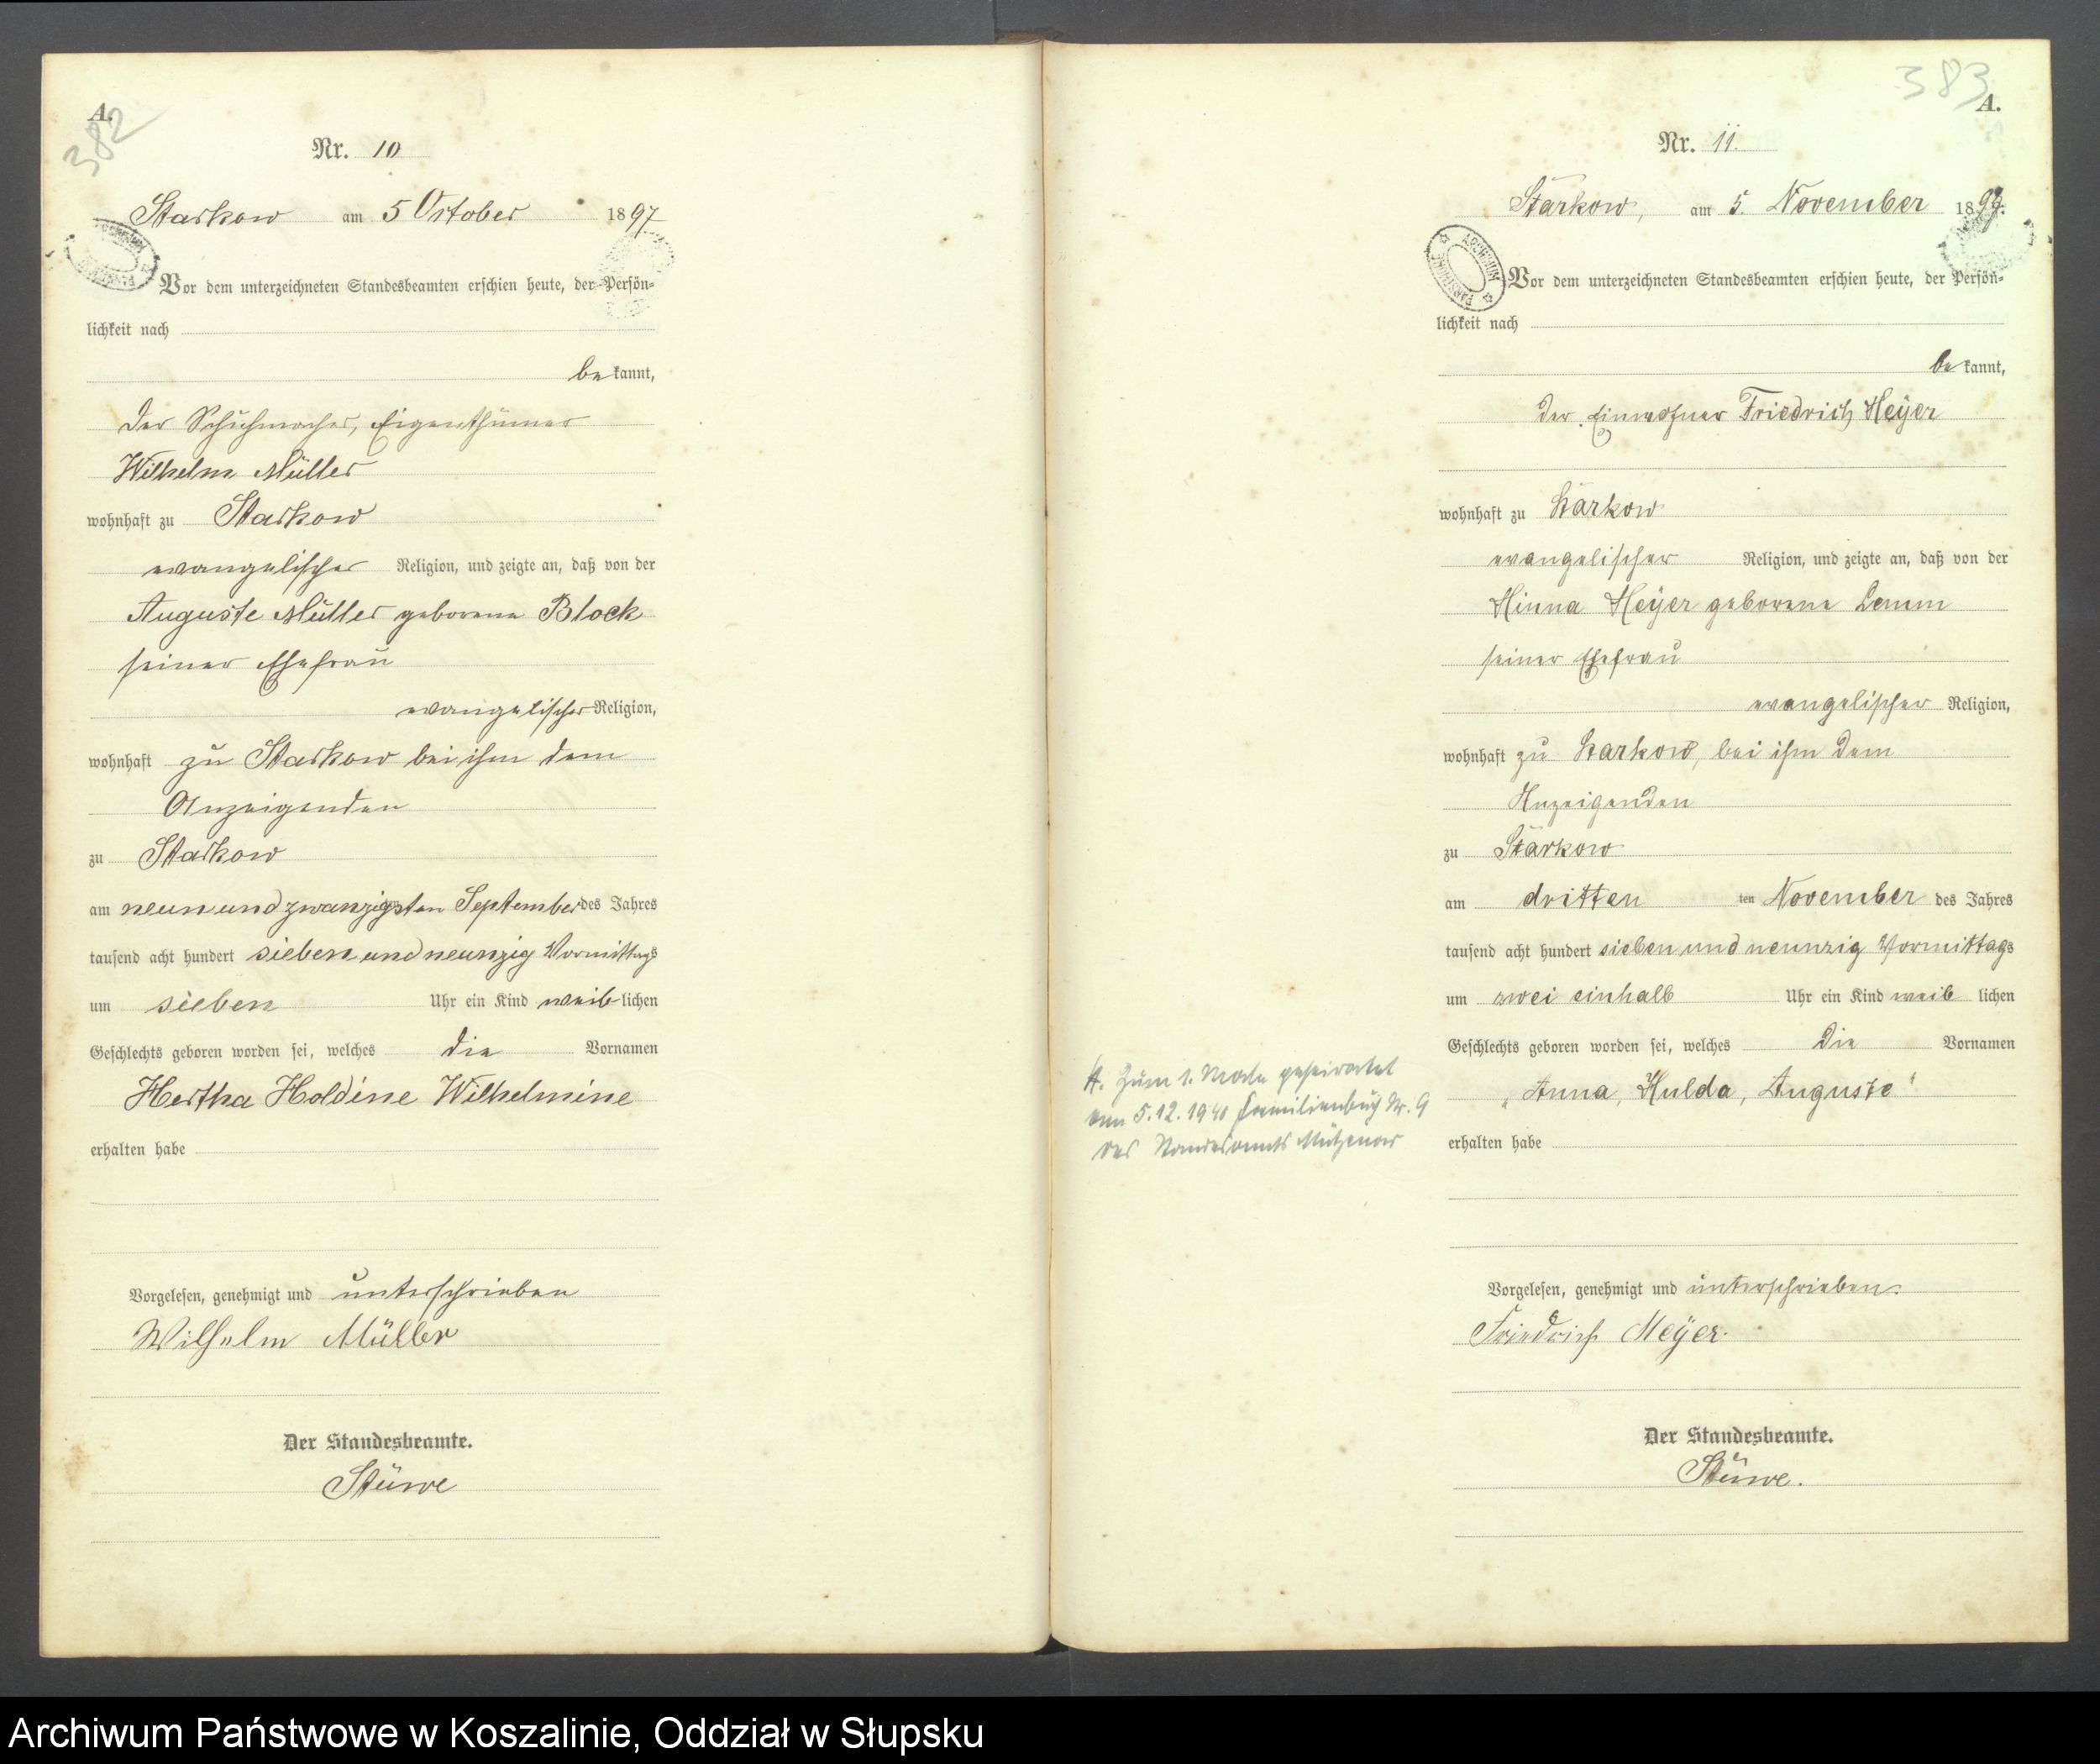 A.
382
Nr. 10
Starkow am 5 October 1897
Vor dem unterzeichneten Standesbeamten erschien heute, der Persön-
lichkeit nach
be kannt,
der Schuhmacher, Eigenthümer
Wilhelm Müller
wohnhaft zu Starkow
evangelischer Religion, und zeigte an, daß von der
Auguste Müller geborene Block
seiner Ehefrau
evangelischer Religion,
wohnhaft zu Starkow bei ihm dem
Anzeigenden
zu Starkow
am neun und zwanzigsten September des Jahres
tausend acht hundert sieben und neunzig Vormittags
um sieben Uhr ein Kind weib lichen
Geschlechts geboren worden sei, welches die Vornamen
Hertha Holdine Wilhelmine
erhalten habe
Vorgelesen, genehmigt und unterschrieben
Wilhelm Müller
Der Standesbeamte.
Stüwe
383
A.
Nr. 11.
Starkow, am 5. November 1897.
ARCHIWUM
Vor dem unterzeichneten Standesbeamten erschien heute, der Persön-
lichkeit nach
be kannt,
der Einwohner Friedrich Meÿer
wohnhaft zu Starkow
evangelischer Religion, und zeigte an, daß von der
Minna Meÿer geborene Lemm
seiner Ehefrau
evangelischer Religion,
wohnhaft zu Starkow, bei ihm dem
Anzeigenden
zu Starkow
am dritten ten November des Jahres
tausend acht hundert sieben und neunzig Vormittags
um zwei einhalb Uhr ein Kind weib lichen
Geschlechts geboren worden sei, welches die Vornamen
„Anna, Hulda, Auguste"
erhalten habe
H. Zum 1. Male geheiratet
am 5.12.1940 Familienbuch Nr. 9
des Standesamts Mützenow
Vorgelesen, genehmigt und unterschrieben.
Friedrich Meÿer.
Der Standesbeamte.
Stüwe.
Archiwum Państwowe w Koszalinie, Oddział w Słupsku